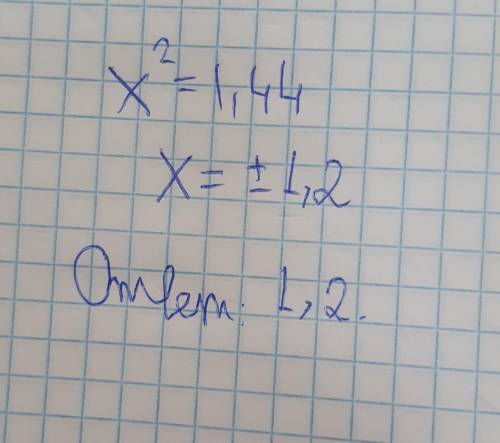 x² = 1,44
x = ± 1,2
Ответ: 1,2.